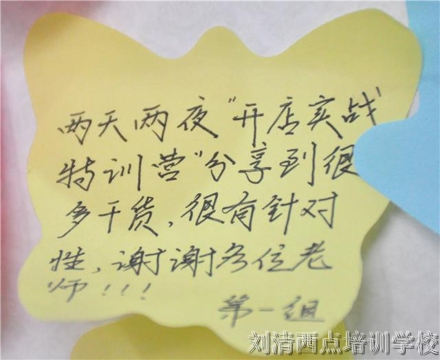 两天两夜"开店实战
特训营"分享到很
多干货,很有针对
性,谢谢各位老
师!!!
第一组
刘清西点培训学校